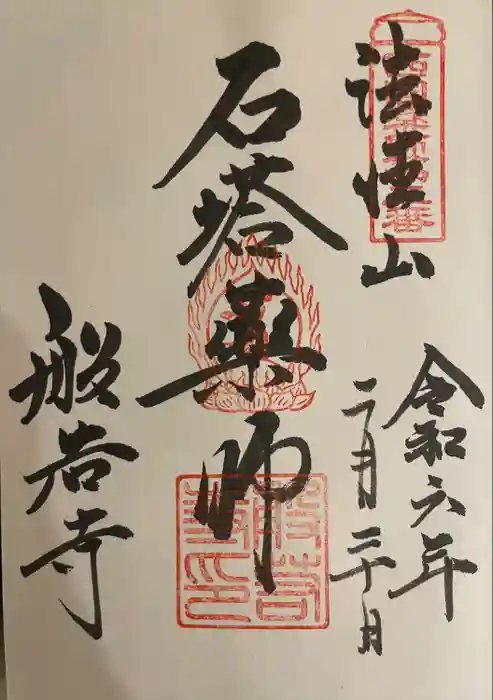 法性山
令和六年
三月三十日
石塔薬師
般若寺